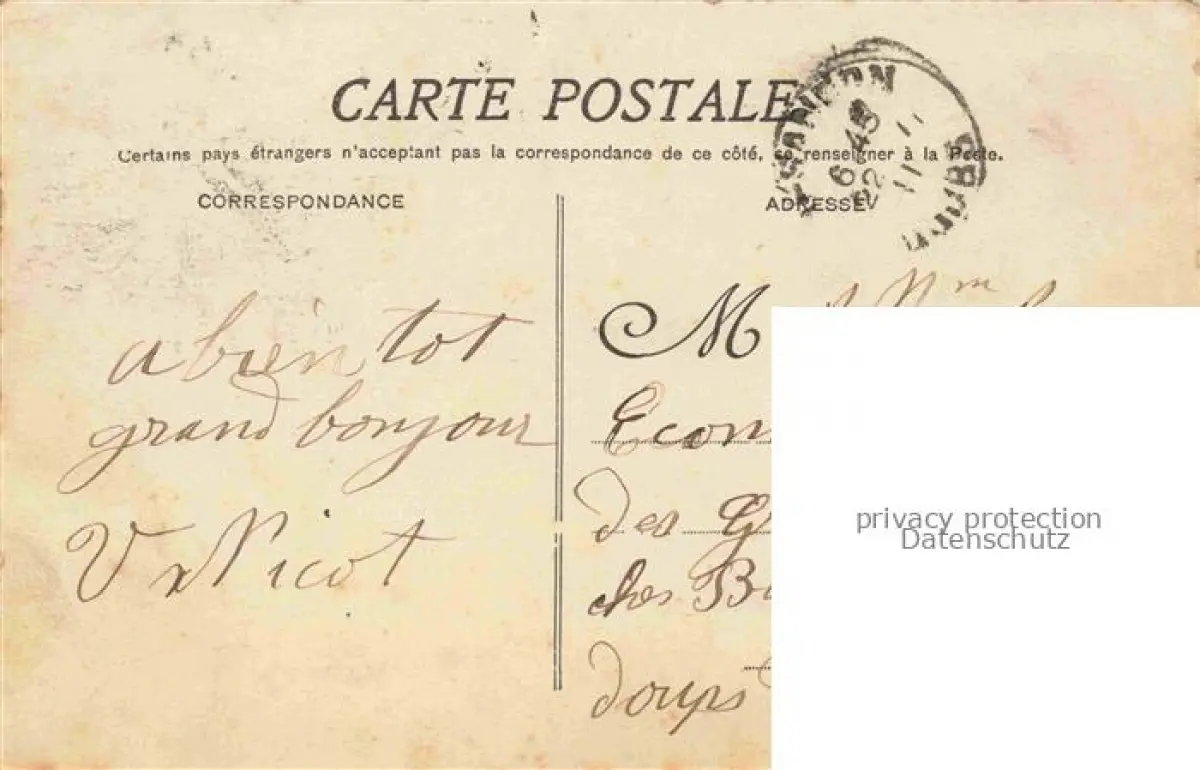 CARTE POSTALE
Certains pays étrangers n'acceptant pas la correspondance de ce côté, se renseigner à la Poste.
CORRESPONDANCE
ADRESSE
6 45
22 11
11
DOUBS
a bientot
grand bonjour
V Nicot
M
Econ
des G
des B
doups
privacy protection
Datenschutz